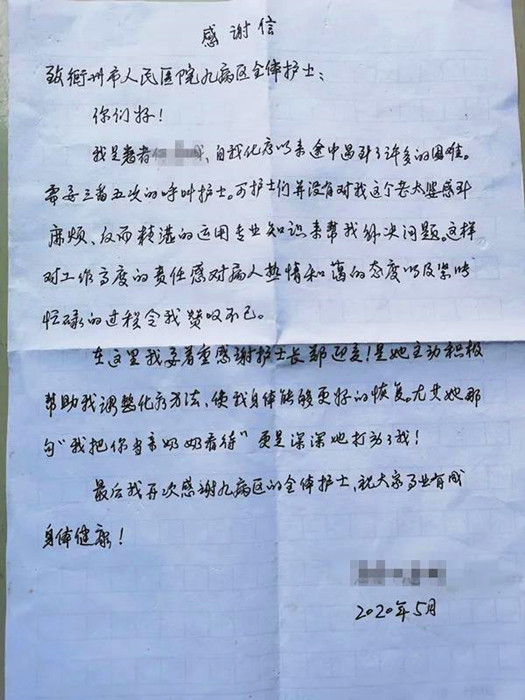 感谢信
致衢州市人民医院九病区全体护士：
你们好！
我是患者何，自我化疗以来途中遇到了许多的困难。
需要三番五次的呼叫护士。可护士们并没有对我这个老太婆感到
麻烦、反而精湛的运用专业知识来帮我解决问题。这样
对工作高度的责任感对病人热情和蔼的态度以及紧张
忙碌的过程令我赞叹不已。
在这里我要着重感谢护士长郑迎春！是她主动积极
帮助我调整化疗方法，使我身体能够更好的恢复。尤其她那
句“我把你当亲奶奶看待”更是深深地打动了我！
最后我再次感谢九病区的全体护士，祝大家事业有成
身体健康！
2020年5月